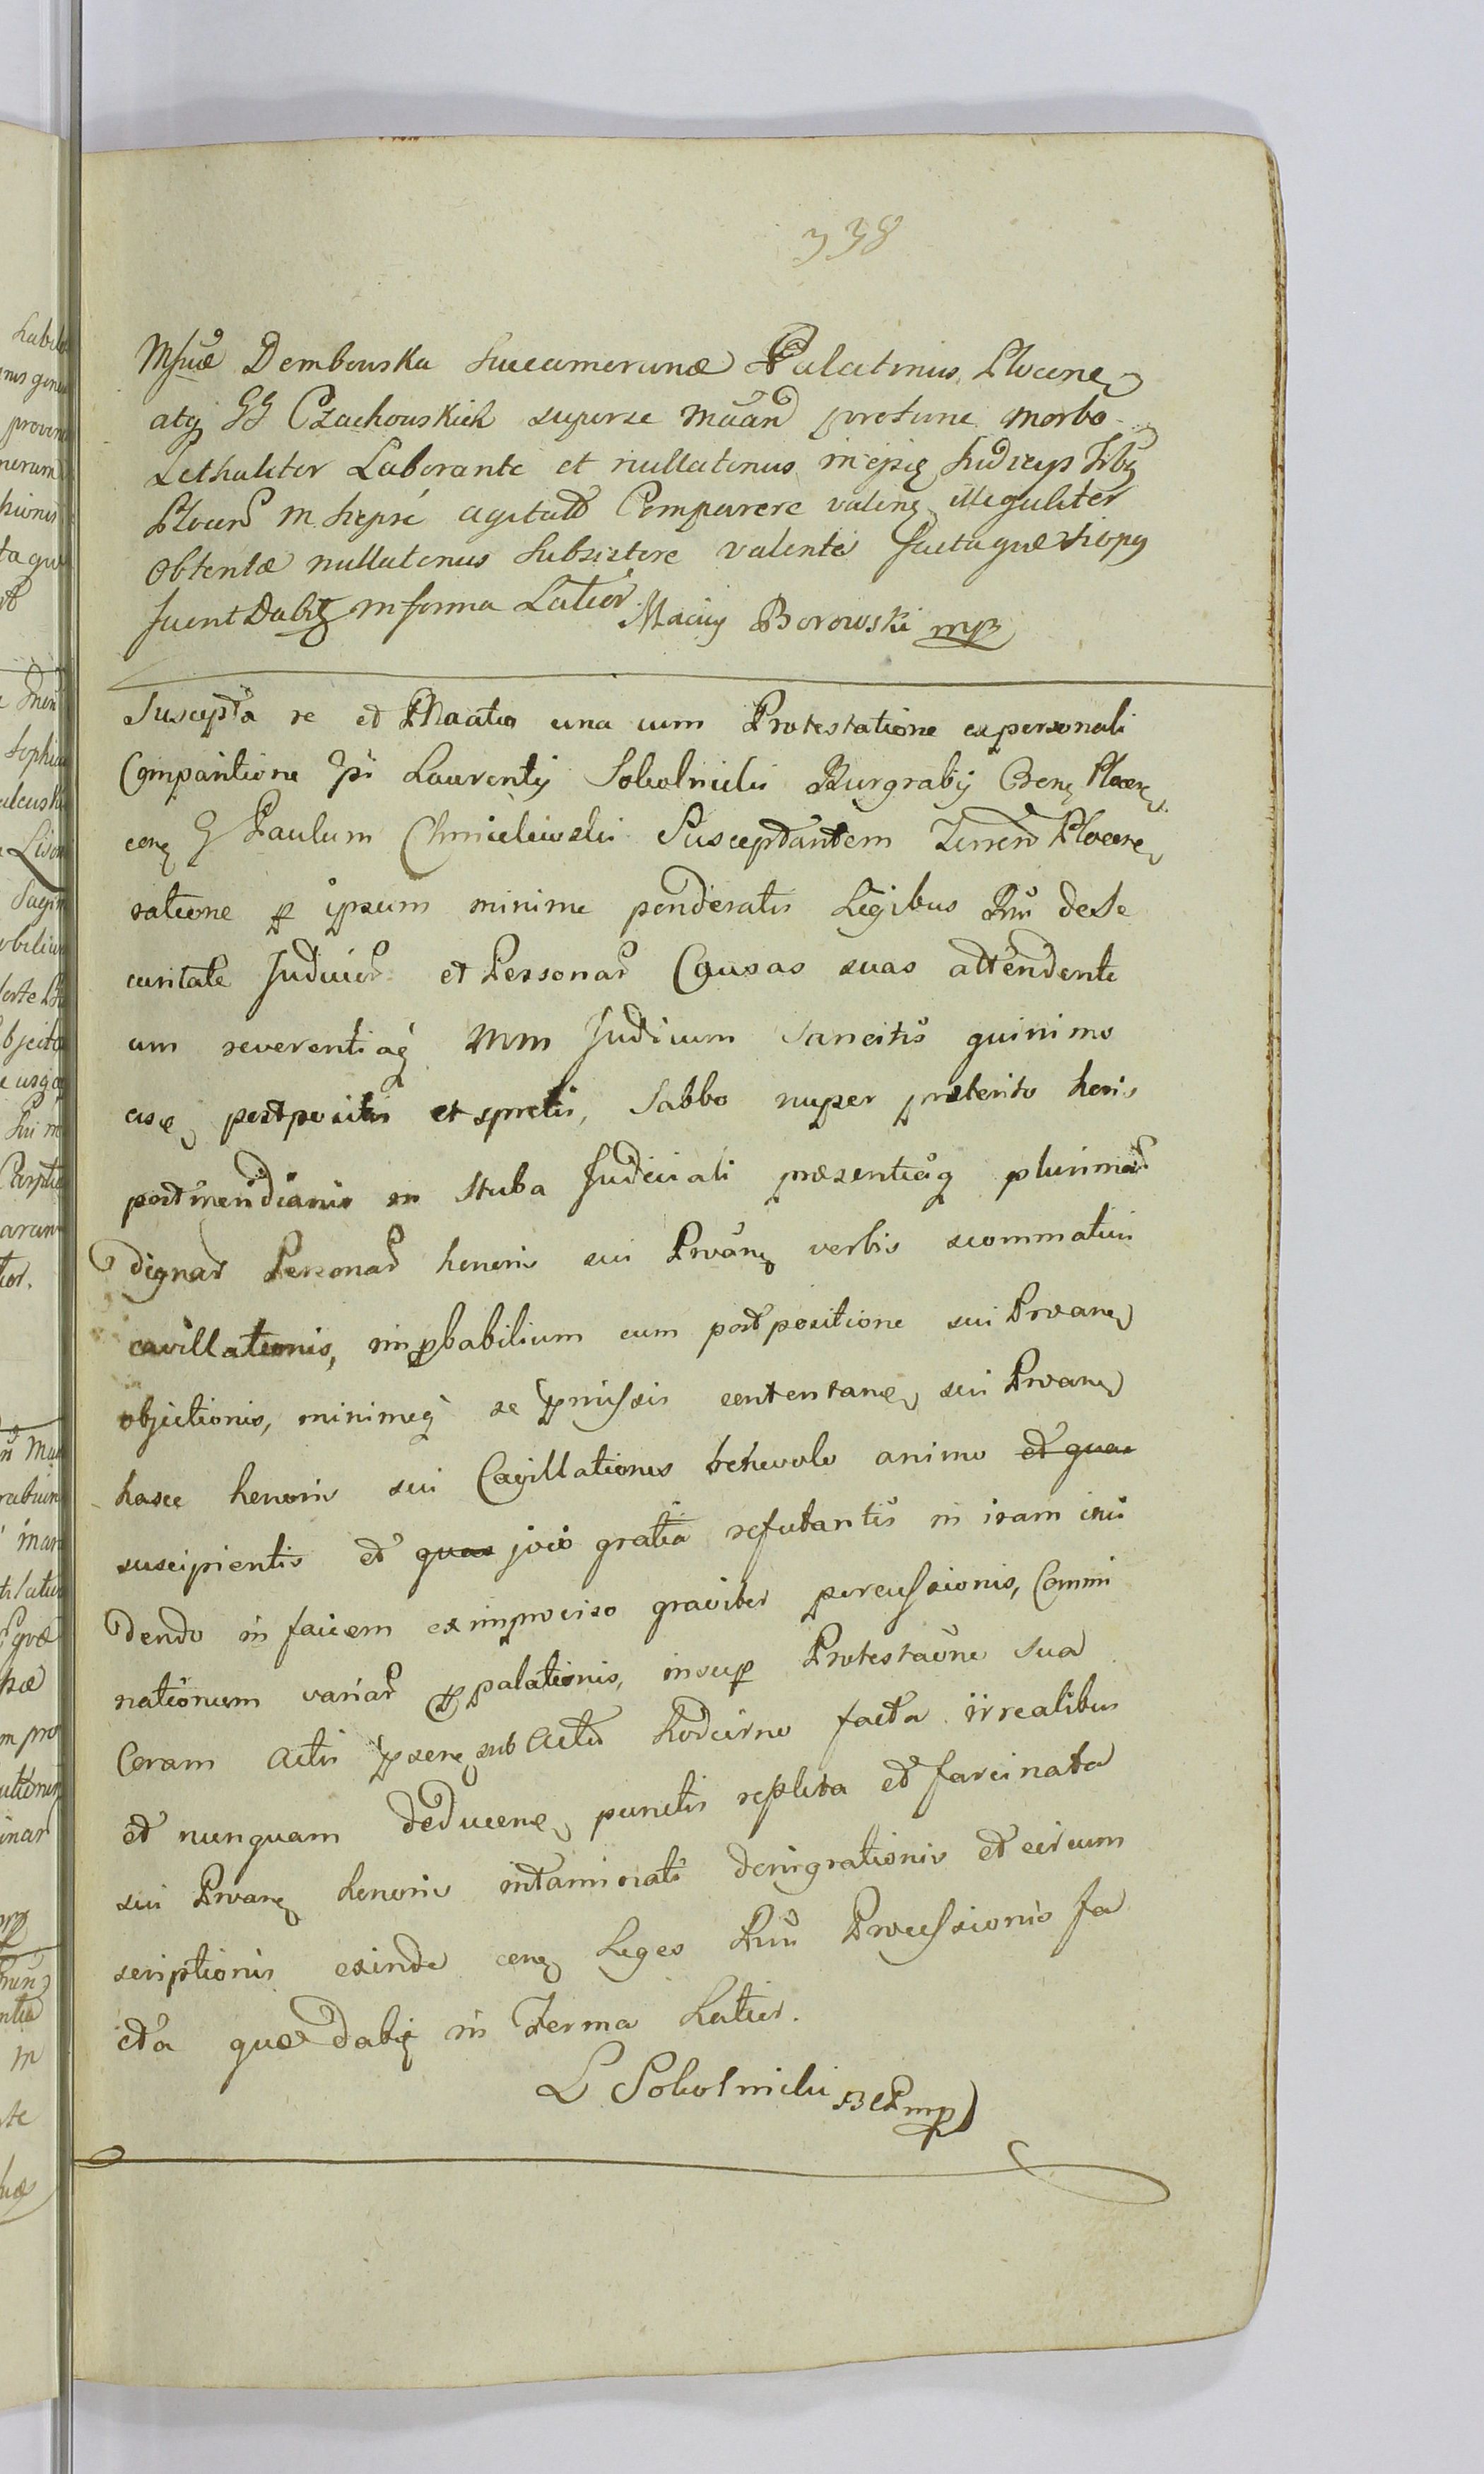 338
Mſuæ Dembouska Succamerariæ Palatinus, Plocene
atq GG Czachouskich superse Māān protunc morbo
Lethaliter Laborante et nullatenus in ejsq Judicijs
Plocen in Comparere valenę illegaliter
Obtentæ nullatenus Subsistere valente factaquæ
fuent Dabit in forma Latior.
Maciey Borowski mp
Suscepta re et Maātio una cum Protestatione expersonali
Comparitione Laurentij Sokolnicki Burgrabij Plocen
conę G Paulum Chmielewski Susceptantem Terren Plocene
ratione p ipsum minime ponderatis Legibus Rni deSe
curitate Judicior et Personar Causas suas attendente
um reverentiaq MM Judicum sancitis quinimo
eisę postpositis et spretis, Sabbo nuper præterito horis
postmeridianis in Stuba Judiciali præsentiaq plurimar
Dignar Personar honoris sui Prōanę verbis scommatici
cavillationis, improbabilium cum postpositione sui Proanę
objectionis, minimeq se pmiſsis contentanę, sui Proanę
hasce honoris sui Cavillationes benevolo animo et quas
suscipientis et quas joco gratia refutantis in iram
dendo in faciem eximproviso graviter percuſsionis, Commi
nationum variar ppalationis, insup Protestaōne sua
Coram Actis psenę sub Actu hodierno facta irrealibus
et nunquam deducenę, punctis repleta et farcinata
sui Proanę honoris intaminati denigrationis et circum
scriptionis exinde conę Leges Rni Proceſsionis fa
cta quæ Dabit in Forma Latior.
L Sokolnicki BCPmp